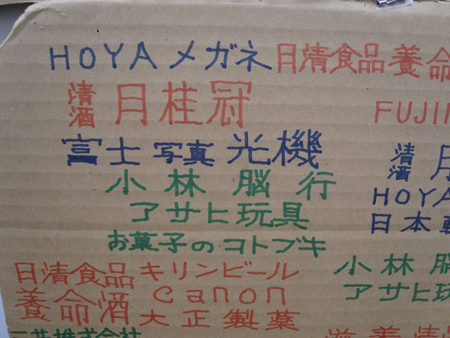 HOYA メガネ 日清食品 養命
清酒 月桂冠
FUJI
富士写真光機
清酒 月
小林脳行
HOYA
アサヒ玩具
日本
お菓子のコトブキ
日清食品 キリンビール
小林脳
養命酒 canon
アサヒ玩
大正製薬
三共株式会社
滋養清